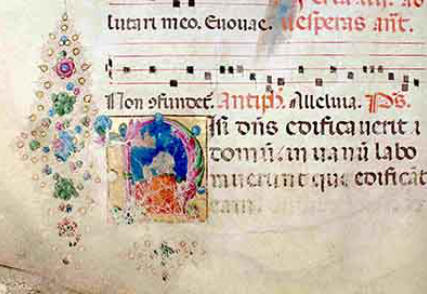 lutari meo. Euouae. Vesperas añt.
Non ꝯfundet. Antiph. Alleluia. Ps.
Nisi dñs edificauerit
domũ. in uanũ labo
rauerunt qui edificãt
eam.